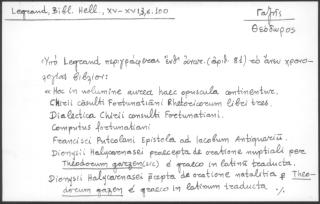 Legrand, Bibl. Hell., XV-XVI 3, σ. 100
Γαζῆς
Θεόδωρος
Ὑπὸ Legrand περιγράφεται ἐνθ' ἀνωτ. (ἀριθ. 81) τὸ ἄνω χρονο-
λογίας βιβλίον:
« Hoc in volumine aurea haec opuscula continentur.
Chirii consulti Fortunatiani Rhetoricorum libri tres.
Dialectica Chirii consulti Fortunatiani.
Computus fortunatiani
Francisci Puteolani Epistola ad Iacobum Antiquariũ.
Dionysii Halycarnasei praecepta de oratione nuptiali per
Theodorum gazgen (sic) e graeco in latinũ traducta.
Dionysii Halycarnasei pcepta de oratione natalitia p Theo-
dorum gazen e graeco in latinum traducta ./.